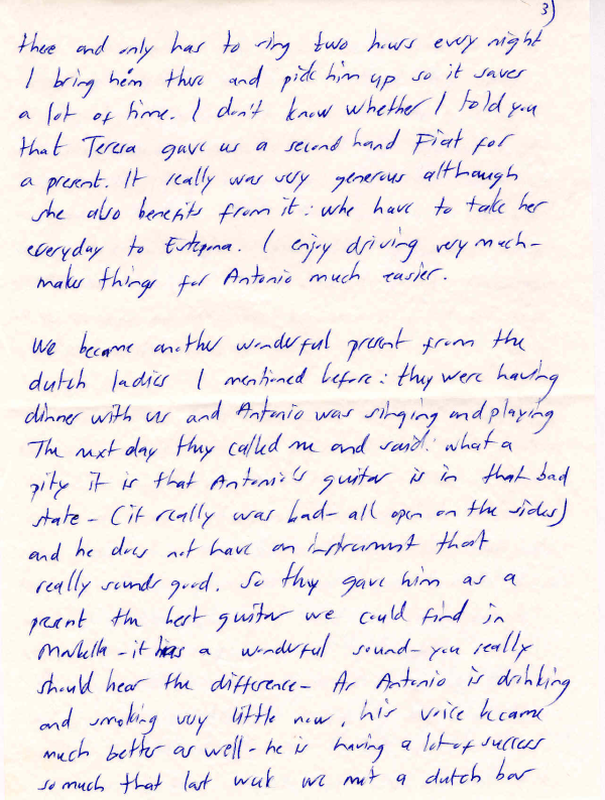 3)
there and only has to sing two hours every night
I bring him there and pick him up so it saves
a lot of time. I don't know whether I told you
that Teresa gave us a second hand Fiat for
a present. It really was very generous although
she also benefits from it: whe have to take her
everyday to Estepona. I enjoy driving very much-
makes things for Antonio much easier.
We became another wonderful present from the
dutch ladies I mentioned before: they were having
dinner with us and Antonio was singing and playing
The next day they called me and said: what a
pity it is that Antonio's guitar is in that bad
state - (it really was bad - all open on the sides)
and he does not have an instrument that
really sounds good. So they gave him as a
present the best guitar we could find in
Marbella - it has a wonderful sound - you really
should hear the difference - As Antonio is drinking
and smoking very little now, his voice became
much better as well - he is having a lot of success
so much that last week we met a dutch bar